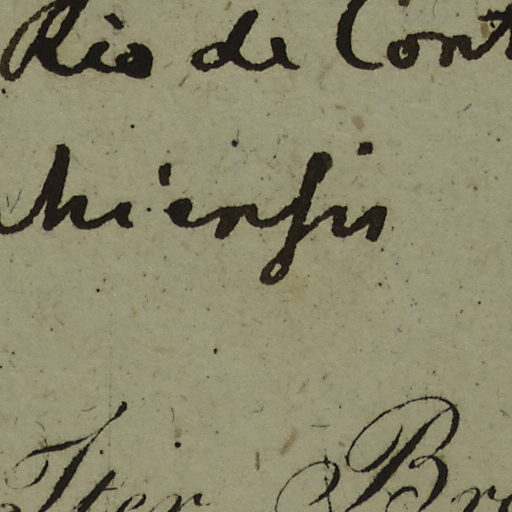 Rio de Cont
hiensis
Iter Bra